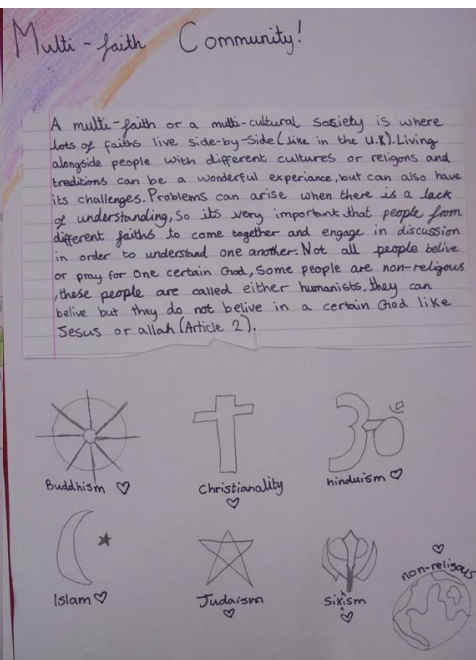 Multi-faith Community!
A multi-faith or a multi-cultural society is where
lots of faiths live side-by-side (like in the U.K). Living
alongside people with different cultures or religons and
treditions can be a wonderful experiance, but can also have
its challenges. Problems can arise when there is a lack
of understanding, So its very important that people from
different faiths to come together and engage in discussion
in order to understand one another. Not all people belive
or pray for One certain God, Some people are non-religous
, these people are called either humanists, they can
belive but they do not belive in a certain God like
Jesus or allah (Article 2).
Buddhism ♡
Christianality ♡
hinduism ♡
Islam ♡
Judaism ♡
Sikhism ♡
non-religous ♡